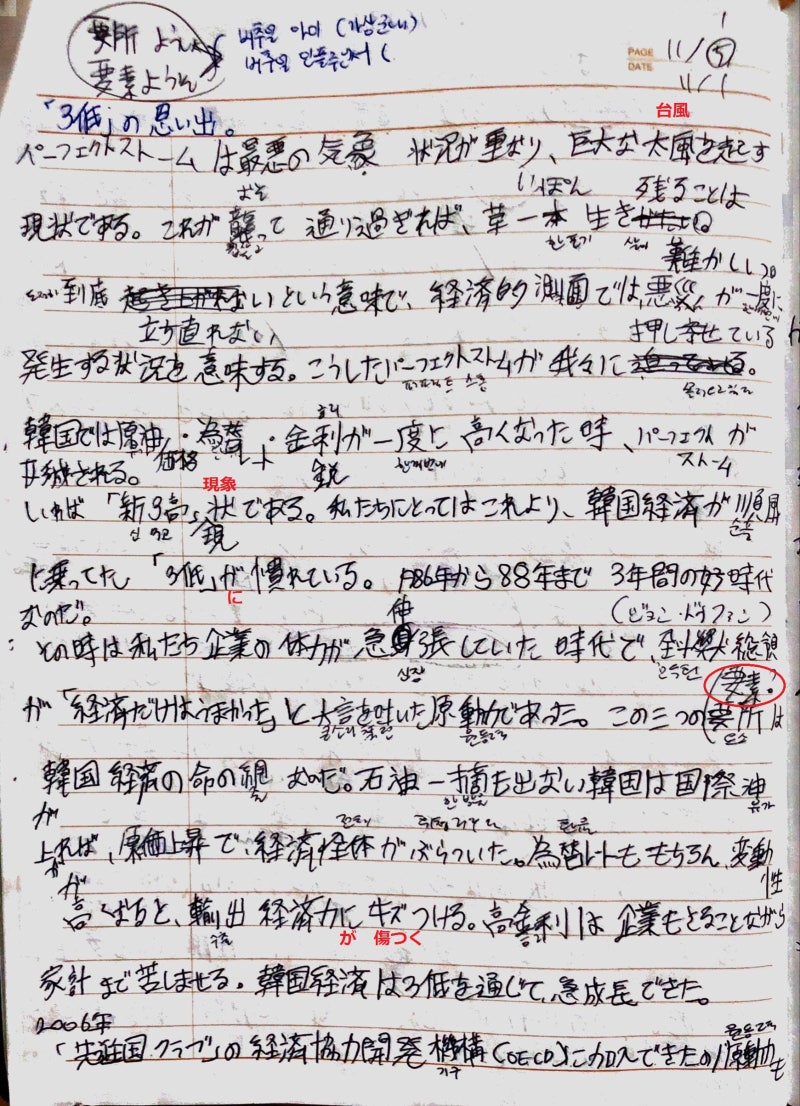 要所 ようしょ 버추얼 아이 (가상
要素 ようそ 버추얼 인플루언서 (
PAGE 11/⑤
DATE 11/1
「3低」の思い出。
台風
パーフェクトストームは最悪の気象 状況が重なり、巨大な大風を起こす
おそ いっぽん 残ることは
現状である。これが襲って通り過ぎれば、草一本 生き
한 포기 難かしい。
到底 いという意味で、経済的側面では、悪災が一度に
立ち直れない 押し寄せている
発生する状況を意味する。こうしたパーフェクトストームが我々に 。
퍼펙트 스톰 몰려오고 있다
韓国では原油・為替・金利が一度に高くなった時、パーフェクトストームが
価格 レート 한꺼번에
形成される。
現象
いわば「新3高」状である。私たちにとってはこれより、韓国経済が順風
신 3고 순풍
に乗ってた「3低」が慣れている。1986年から88年まで 3年間の好時代
に
なのだ。 伸
その時は私たち企業の体力が急 張していた時代で、全斗煥大統領
신장 전두환
要素?
が「経済だけはうまかった」と大言を吐いた原動力であった。この三つの(要所は
원동력 요소
韓国経済の命の綱なのだ。石油一滴も出ない韓国は国際油
한 방울 유가
が
上れば、原価上昇で、経済全体がぶらついた。為替レートももちろん、変動
が 性
高くなると、輸出経済力にキズつける。高金利は企業もとることながら
수출 が 傷つく
家計まで苦しませる。韓国経済は3低を通じて、急成長できた。
2006年
원동력
「先進国クラブ」の経済協力開発機構(OECD)に加入できたの原動力も
기구